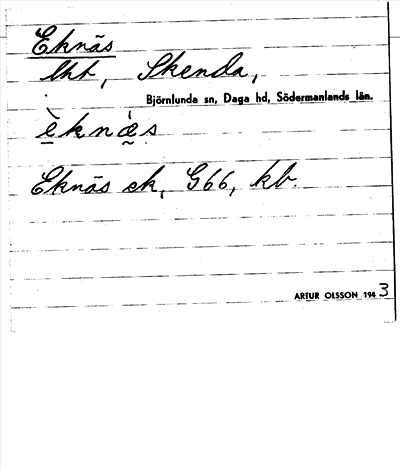 Eknäs
lht, Skenda,
Björnlunda sn, Daga hd, Södermanlands län.
èknæ̀s
Eknäs ek, G66, kb.
ARTUR OLSSON 1943